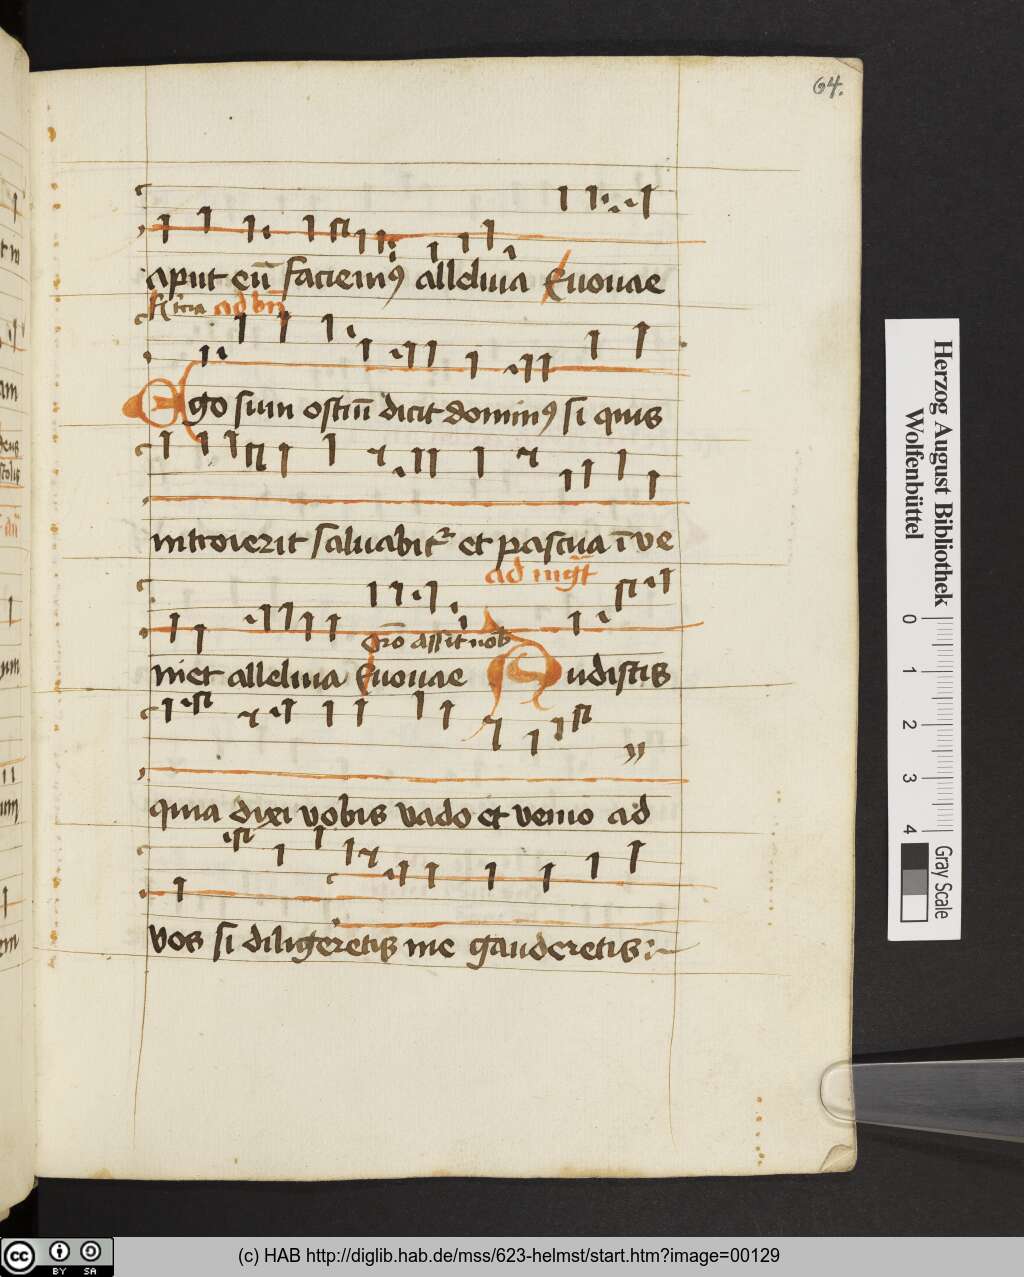 64.
aput eū faciemꝰ alleluia Euouae
ad bn̄
Ego sum ostiū dicit dominꝰ si quis
introierit saluabit᷑ et pascua īve
ad mgt̄
oro assit nob
niet alleluia Euouae Audistis
quia dixi vobis vado et venio ad
vos si diligeretis me gauderetis:~
Herzog August Bibliothek
Wolfenbüttel
0 1 2 3 4
Gray Scale
cc BY SA
(c) HAB http://diglib.hab.de/mss/623-helmst/start.htm?image=00129